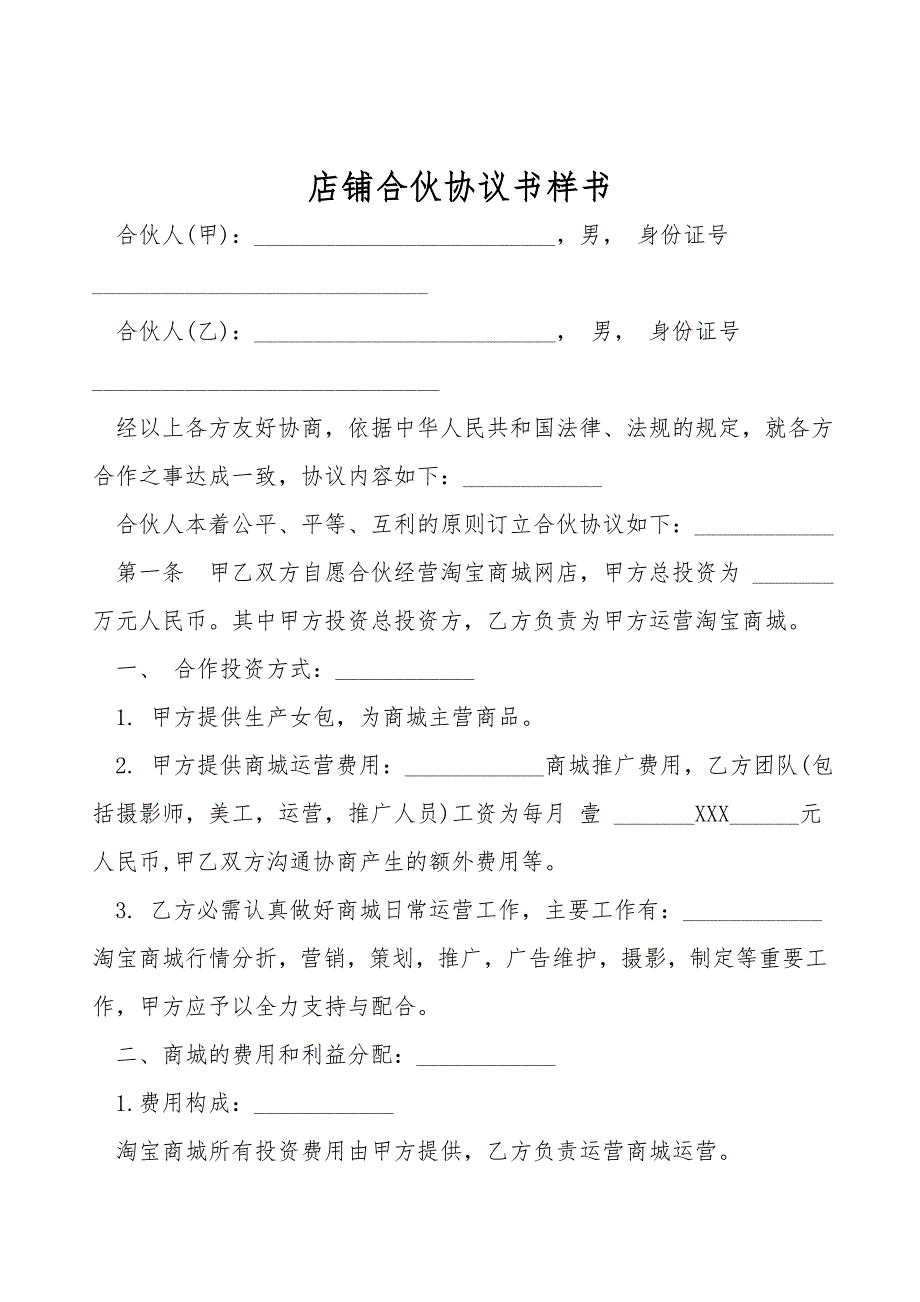 店铺合伙协议书样书
合伙人(甲)：__________________________，男， 身份证号
_____________________________
合伙人(乙)：__________________________， 男， 身份证号
______________________________
经以上各方友好协商，依据中华人民共和国法律、法规的规定，就各方
合作之事达成一致，协议内容如下：____________
合伙人本着公平、平等、互利的原则订立合伙协议如下：____________
第一条 甲乙双方自愿合伙经营淘宝商城网店，甲方总投资为 _______
万元人民币。其中甲方投资总投资方，乙方负责为甲方运营淘宝商城。
一、 合作投资方式：____________
1. 甲方提供生产女包，为商城主营商品。
2. 甲方提供商城运营费用：____________商城推广费用，乙方团队(包
括摄影师，美工，运营，推广人员)工资为每月 壹 _______XXX______元
人民币,甲乙双方沟通协商产生的额外费用等。
3. 乙方必需认真做好商城日常运营工作，主要工作有：____________
淘宝商城行情分折，营销，策划，推广，广告维护，摄影，制定等重要工
作，甲方应予以全力支持与配合。
二、商城的费用和利益分配：____________
1.费用构成：____________
淘宝商城所有投资费用由甲方提供，乙方负责运营商城运营。